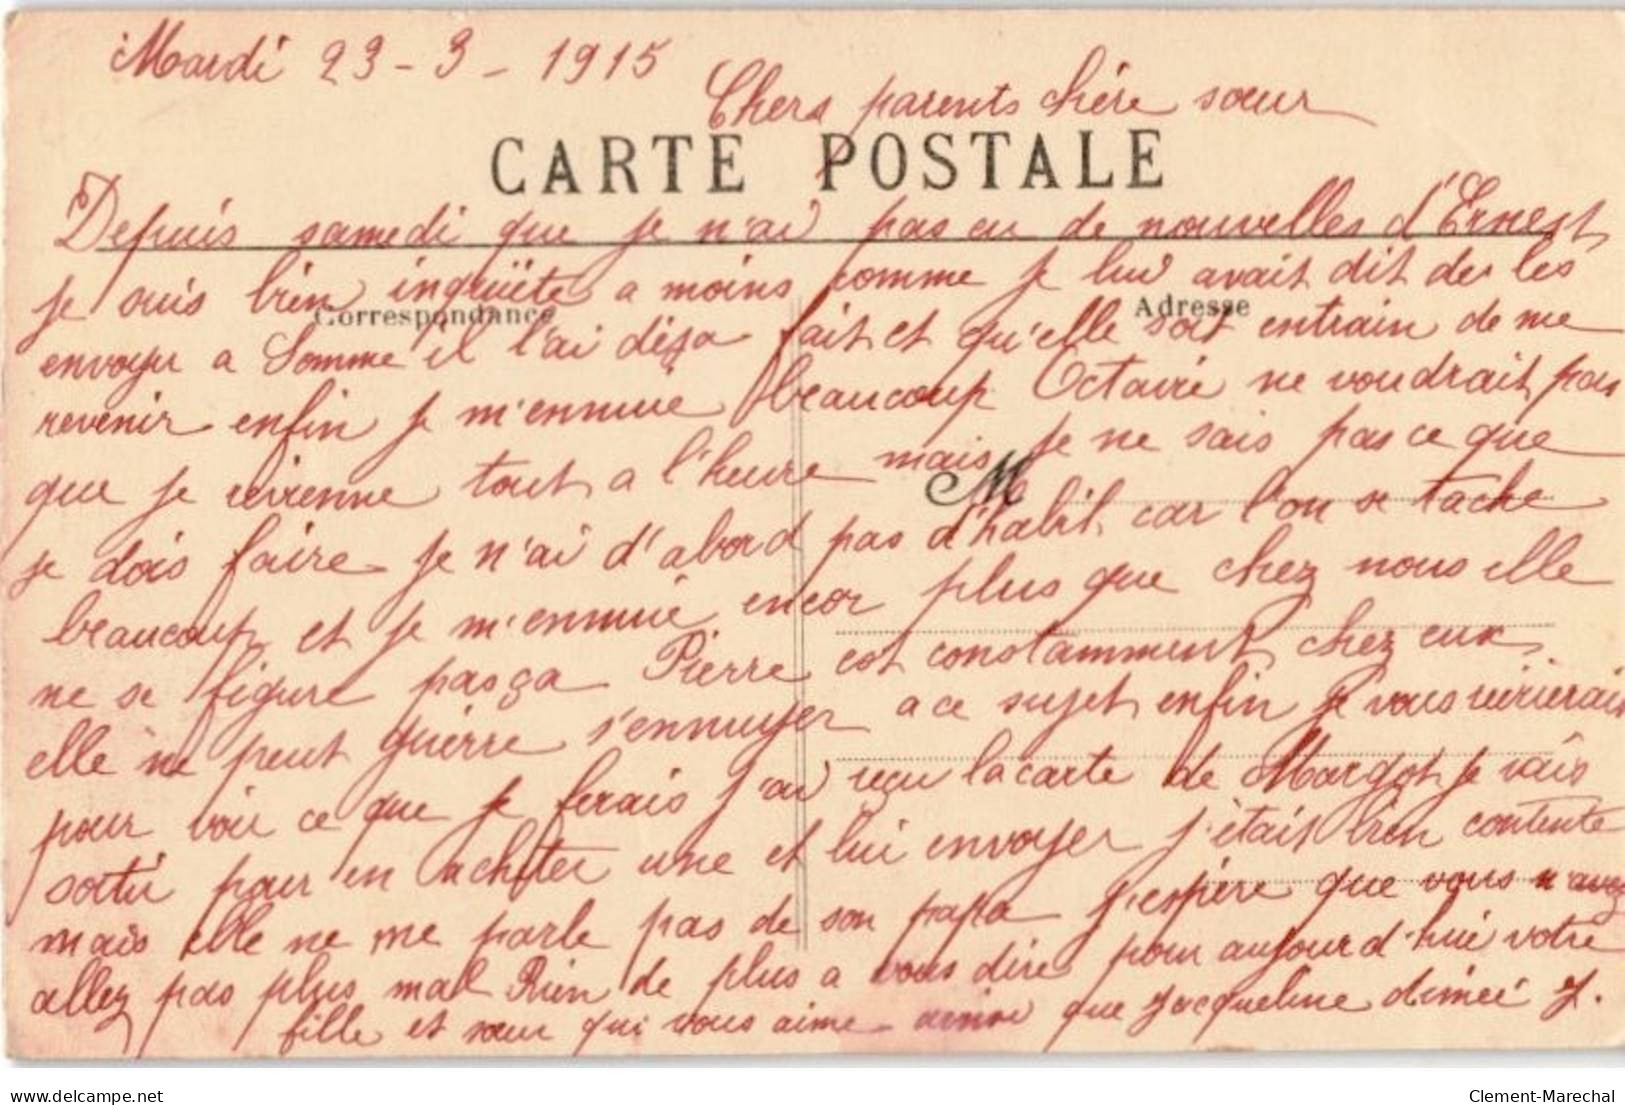 Mardi 23-3-1915
Chers parents chére sœur
CARTE POSTALE
Depuis samedi que je n'ai pas eu de nouvelles d'Ernest
je suis bien inqüiète a moins comme je lui avait dit de les
Correspondance
Adresse
envoyer a Somme il l'ai déja fait et qu'elle soit entrain de me
revenir enfin je m'ennuie beaucoup Octavie ne voudrait pas
que je revienne tout a l'heure mais je ne sais pas ce que
M
je dois faire je n'ai d'abord pas d'habit car l'on se tache
beaucoup et je m'ennuie encor plus que chez nous elle
ne se figure pas ça Pierre est constamment chez eux
elle ne peut guèrre s'ennuyer a ce sujet enfin je vous
pour voir ce que je ferais j'ai reçu la carte de Margot je vais
sortir pour en achter une et lui envoyer j'était bien contente
mais elle ne me parle pas de son papa j'espère que vous n'avez
allez pas plus mal Rien de plus a vous dire pour aujourd'hui votre
fille et sœur qui vous aime ainsi que Jacqueline Aimée J.
delcampe.net
Clement-Marechal